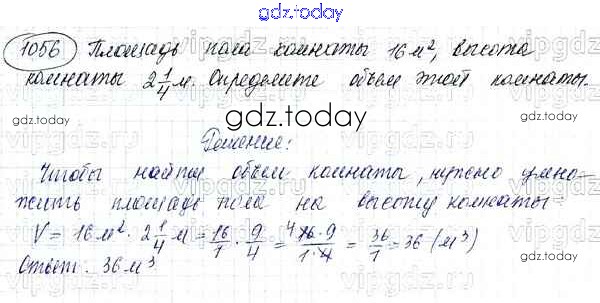 gdz.today
1056 Площадь пола комнаты 16 м², высота
комнаты 2 1/4 м. Определите объем этой комнаты.
gdz.today
Решение:
Чтобы найти объем комнаты, нужно умно-
жить площадь пола на высоту комнаты
V = 16 м² · 2 1/4 м = 16/1 · 9/4 = 4 16·9/1·4 = 36/1 = 36 (м³)
Ответ: 36 м³
gdz.today